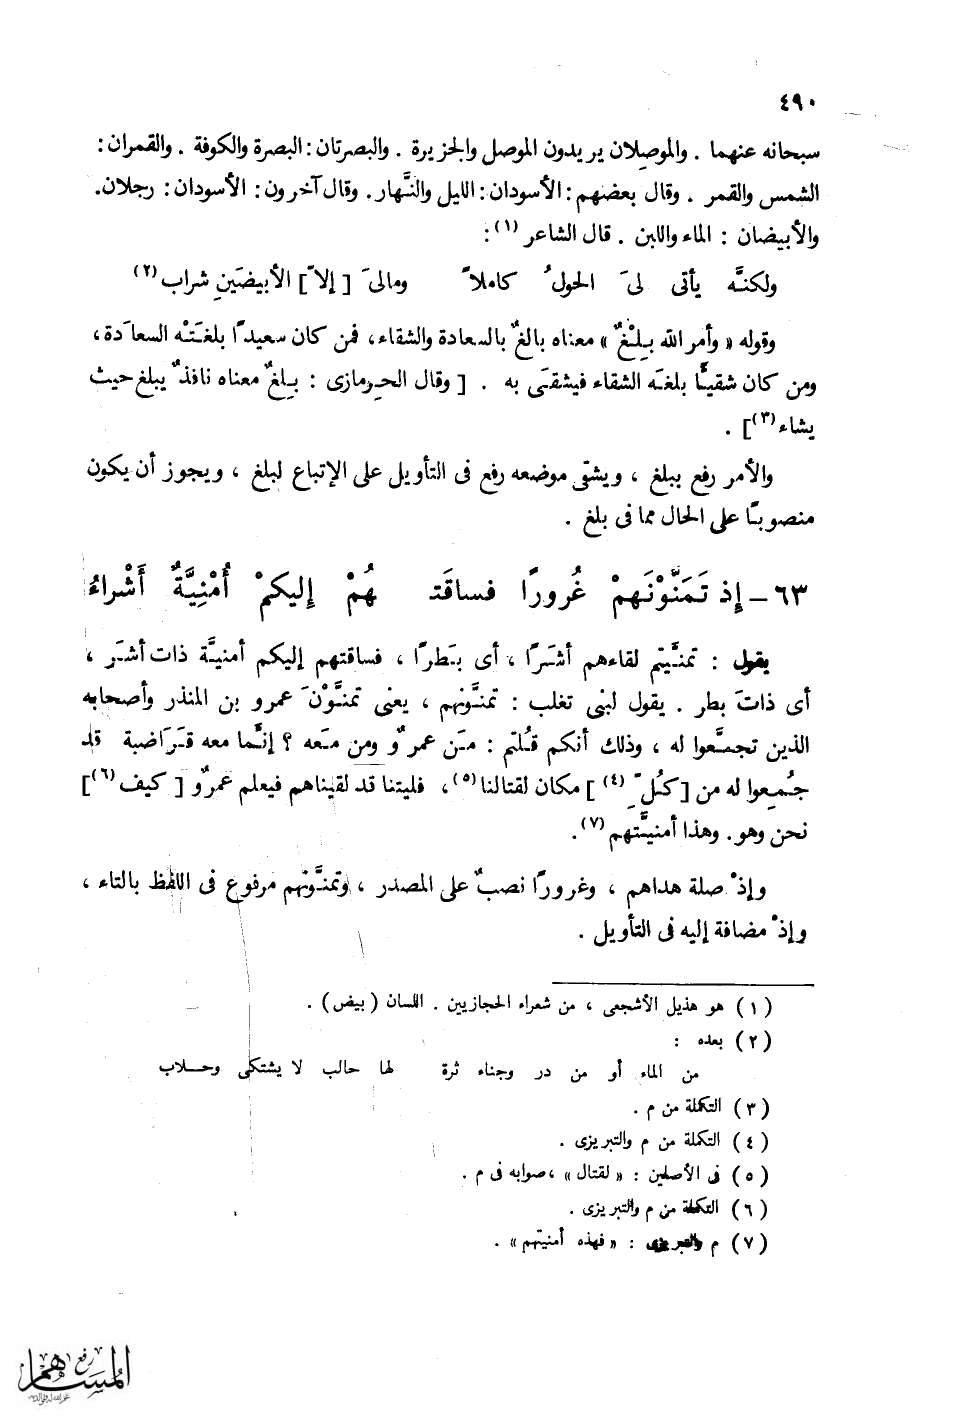 ٤٩٠
سبحانه عنهما . والموصِلان يريدون الموصل والجزيرة . والبصرتان : البصرة والكوفة . والقمران :
الشمس والقمر . وقال بعضهم : الأسودان : الليل والنَّهار . وقال آخرون : الأسودان : رجلان .
والأبيضان : الماء واللبن . قال الشاعر (١) :
ولكنَّه يأتى لىَ الحولُ كاملاً ومالىَ [ إلاّ ] الأبيضَينِ شراب (٢)
وقوله « وأمر الله بِلْغٌ » معناه بالغٌ بالسعادة والشقاء ، فمن كان سعيدًا بلغَتْه السعادَة ،
ومن كان شقيًّا بلغَه الشقاء فيشقَى به . [ وقال الحرمازى : بِلغٌ معناه نافذٌ يبلغ حيث
يشاء (٣) ] .
والأمر رفع ببلغ ، ويشقى موضعه رفع فى التأويل على الإتباع لبلغ ، ويجوز أن يكون
منصوبًا على الحال مما فى بلغ .
٦٣ – إِذ تَمَنَّوْنَهمْ غُرورًا فساقَتـ هُمْ إِليكمْ أُمْنِيَّةٌ أَشْراءُ
يقول : تمنيَّتم لقاءهم أشَرًا ، أى بَطرًا ، فساقتهم إليكم أمنيَّة ذات أشَر ،
أى ذاتَ بطر . يقول لبنى تغلب : تمنَّونهم ، يعنى تمنَّوْنَ عمرو بن المنذر وأصحابه
الذين تجمَّعوا له ، وذلك أنكم قُلتم : مَن عمرٌو ومن مَعه ؟ إنَّما معه قَرَاضبة قد
جُمِعوا له من [ كلِّ (٤) ] مكان لقتالنا (٥) ، فليتنا قد لقيناهم فيعلم عمرٌو [ كيف (٦) ]
نحن وهو . وهذا أمنيَّتهم (٧) .
وإذْ صلة هداهم ، وغرورًا نصبٌ على المصدر ، وتمنَّونهم مرفوع فى اللفظ بالتاء ،
وإذْ مضافة إليه فى التأويل .
(١) هو هذيل الأشجعى ، من شعراء الحجازيين . اللسان ( بيض ) .
(٢) بعده :
من الماء أو من در وجناء ثرة لها حالب لا يشتكى وحلاب
(٣) التكملة من م .
(٤) التكملة من م والتبريزى .
(٥) فى الأصلين : « لقتال » ، صوابه فى م .
(٦) التكملة من م والتبريزى .
(٧) م والتبريزى : « فهذه أمنيتهم » .
المساهم